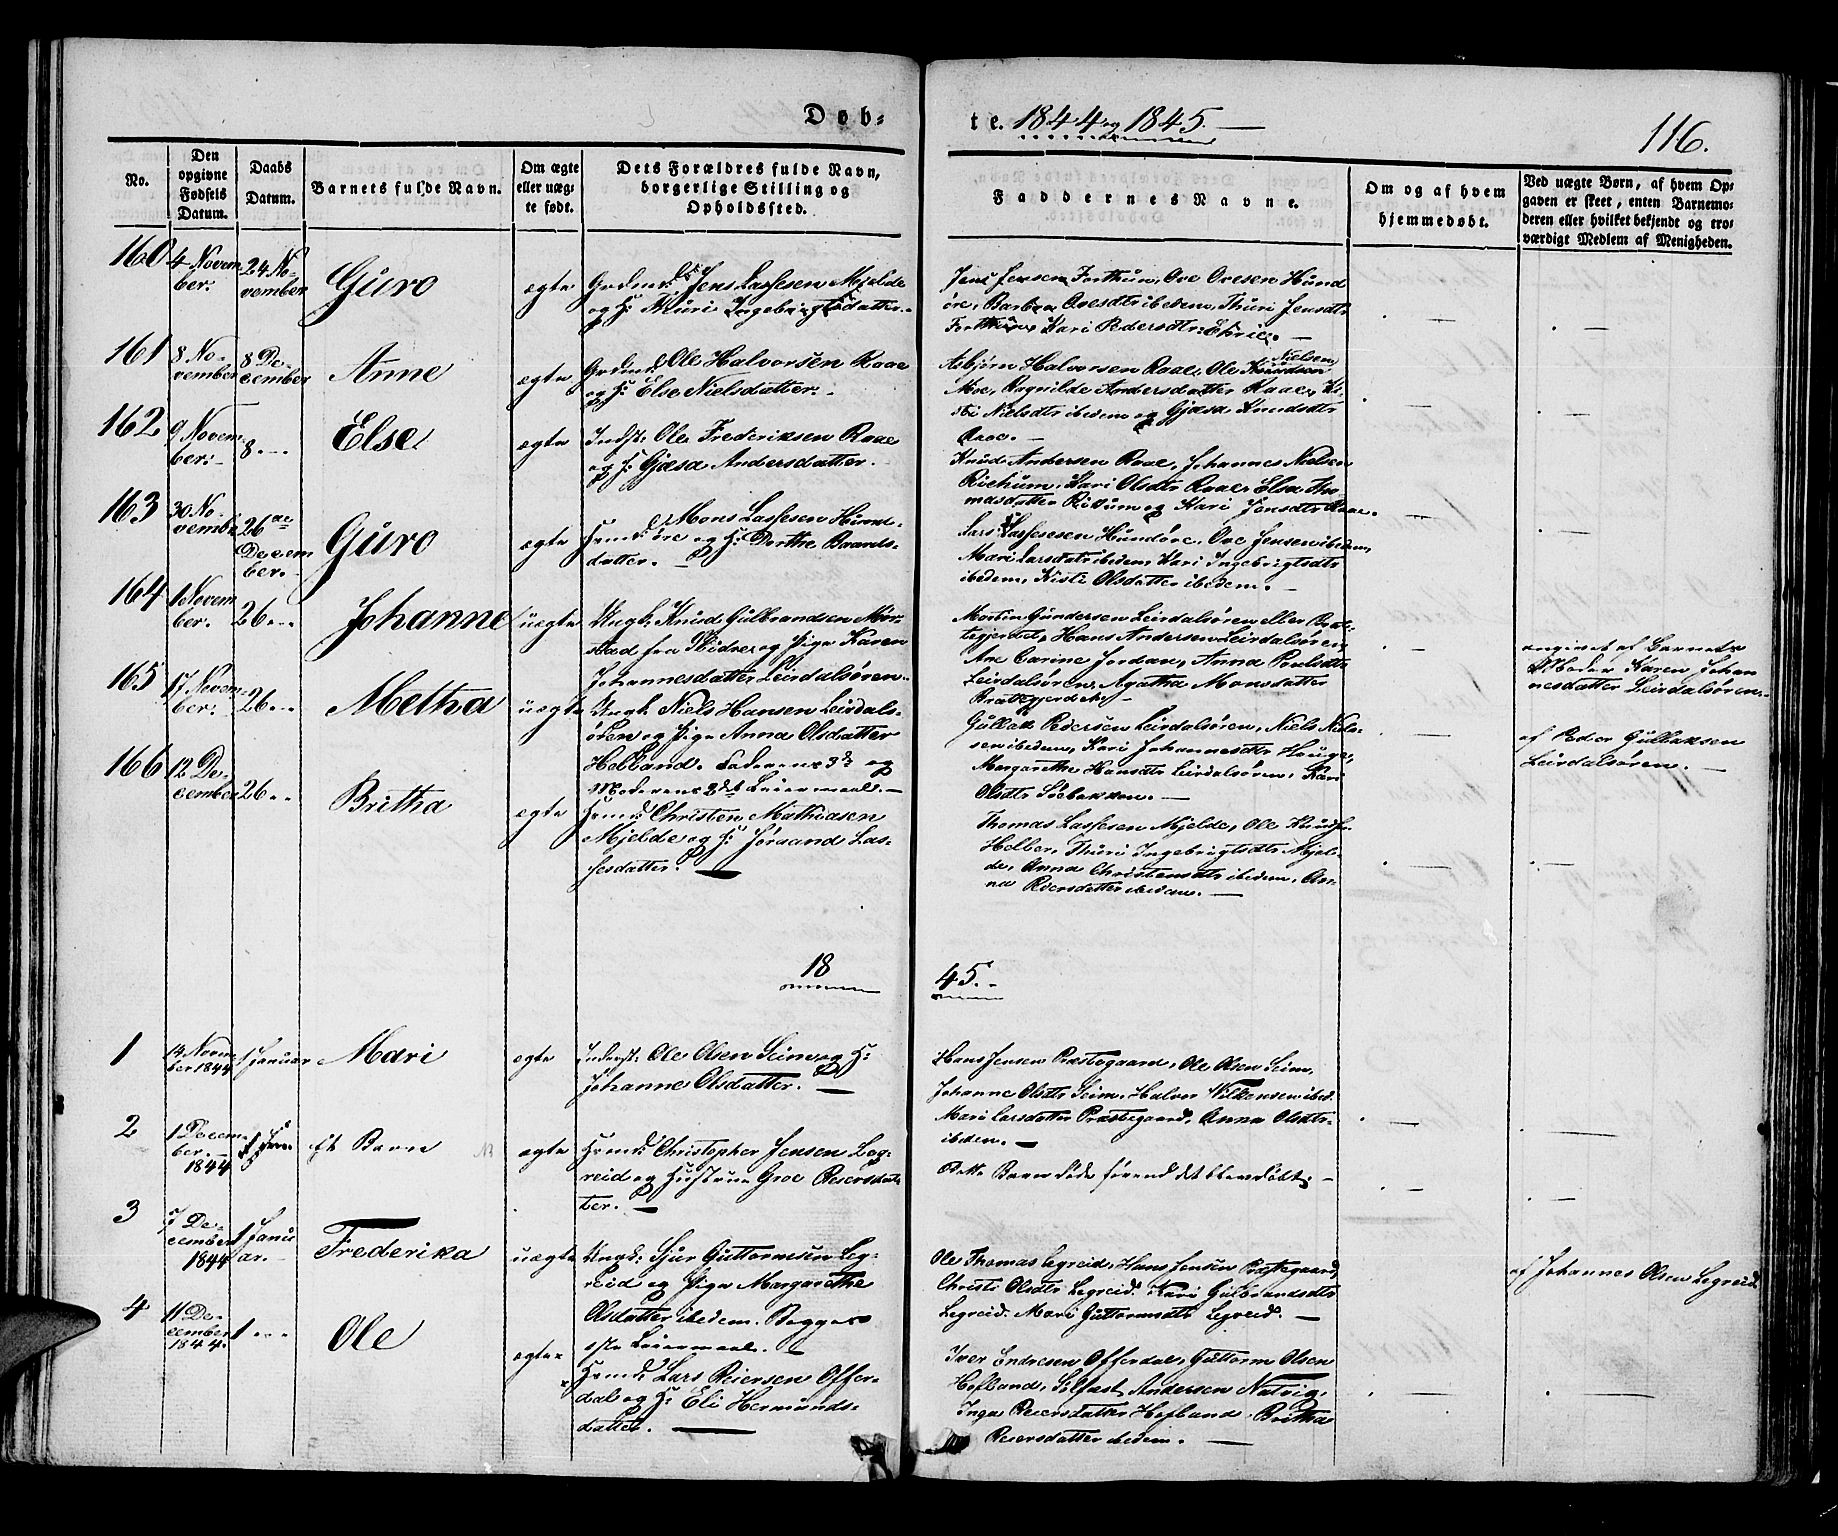 Døb-
te. 1844 og 1845.
116.
No.
Den opgivne Fødsels Datum.
Daabs Datum.
Barnets fulde Navn.
Om ægte eller uæg-te født.
Dets Forældres fulde Navn, borgerlige Stilling og Opholdssted.
Faddernes Navne.
Om og af hvem hjemmedøbt.
Ved uægte Børn, af hvem Op-gaven er skeet, enten Barnemo-deren eller hvilket bekjendt og tro-værdigt Medlem af Menigheden.
160
4 Novem
ber.
24 No-
vember
Guro
ægte
Jens Lassesen Mjelde
og H: Thuri Ingebrigtsdatter.
Jens Jensen Forthun, Ove Ovesen Hund
øre, Barbra Ovesdtr ibedem, Thuri Jensdtr
Forthun, Kari Pedersdtr
161
8 No-
vember
8 De-
cember
Anne
ægte
Ole Halvorsen Raae
og H: Else Nielsdatter.
Asbjørn Halvorsen Raae, Ole Knudsen Nielsen
Moe, Ragnilde Andersdatter Raae, Ki-
sti Nielsdtr ibedem og Gjøsa Knudsdtr
Raae.
162
9 Novem-
ber.
8.--
Else
ægte
Indst: Ole Frederiksen Raae
og H: Gjøsa Andersdatter.
Knud Andersen Raae, Johannes Nielsen
Riehum, Kari Olsdtr Raae, Elsa Tho
masdatter Riehum og Kari Jensdtr Raae.
163
30 No-
vembr
26de
Decem
ber.
Guro
ægte
Mons Lassesen Hunde-
øre og H: Dorthe Baards-
datter.
Lars Lassesen Hundøre, Ove Jensen ibedem,
Mari Larsdatr ibedem, Kari Ingebrigtsdtr
ibedem, Kisti Olsdatter ibedem.
164
1 Novem
ber.
26---
Johanne
uægte
Ungk: Knud Gulbrandsen Mør-
stad fra Slidre og Pige Karen
Johannesdatter Leirdalsøren.
Morten Gundersen Leirdalsøren
Hans Andersen Leirdalsøren,
Ane Carine Jordan, Anna Povlsdtr
Leirdalsøren, Agatha Monsdatter
angivet af Barnets
Moder Karen Johan
nesdatter Leirdalsøren.
165
17 Novem-
ber.
26---
Metha
uægte
Ungk: Niels Hansen Leirdals-
øren og Pige Anna Olsdatter
Helland. Faderens 3de og
Moderens 2det Leiermaal.
Gullak Pedersen Leirdalsøren, Niels Niel-
sen ibedem, Kari Johannesdtr Hauge,
Margrethe Hansdtr Leirdalsøren, Kari
Olsdtr
af Peder Gullaksen
Leirdalsøren.
166
12 De-
cember
26--
Britha
ægte
Christen Mathiasen
Mjelde og H: Jøraand Las-
sesdatter.
Thomas Lassesen Mjelde, Ole
Thuri Ingebrigtsdtr Mjel-
de, Anna Christensdtr ibedem, An-
na Peersdatter ibedem.
18
45.
1
14 Novm
ber 1844
1 Januar
Mari
ægte
Inderst: Ole Olsen Seim og H:
Johanne Olsdatter.
Hans Jensen Præstegaard, Ole Olsen Seim,
Johanne Olsdtr Seim, Halvor Villumsen ibed.
Mari Larsdatter Præstegaard, Anna Olsdtr
ibedem.
2
1 Decem-
ber.
1844
Et Barn
ægte
Christopher Jensen Leg-
reid og Hustrue Groe Reiersdat-
ter.
Dette Barn døde førend det blev døbt.
3
7 De-
cember
1844
1 Janu
ar.
Frederika
uægte
Ungk: Sjur Guttormsen Leg-
reid og Pige Margarethe
Olsdatter ibedem. Begges
1ste Leiermaal.
Ole Thomas Legreid, Hans Jensen Præstegaard,
Christi Olsdtr Legreid, Kari Gulbrandsdtr
Legreid, Mari Guttormsdtr Legreid.
af Johannes Olsen Legreid
4
11 De-
cember
1844.
1 ---
Ole
ægte
Lars Reiersen Offer-
dal og H: Eli Hermunds-
datter.
Iver Endresen Offerdal, Guttorm Olsen
Hofland, Sølfast Andersen Natvig,
Inga Reiersdatter Hofland, Britha
Reiersdatter ibedem.